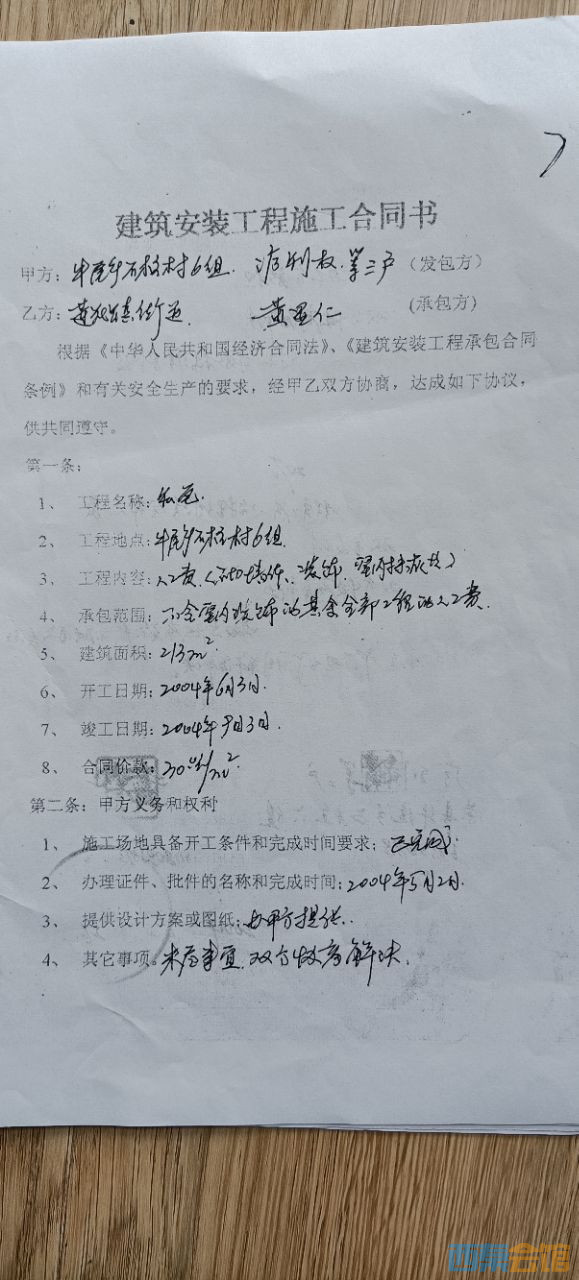 建筑安装工程施工合同书
甲方：牛尾乡石柱村6组. 权.等三户（发包方）
乙方： 镇街道. 黄 仁 (承包方)
根据《中华人民共和国经济合同法》、《建筑安装工程承包合同
条例》和有关安全生产的要求，经甲乙双方协商，达成如下协议，
供共同遵守。
第一条：
1、 工程名称：私宅.
2、 工程地点：牛尾乡石柱村6组.
3、 工程内容：人工费（ 墙体、装饰、室内 ）
4、 承包范围：不含室内装饰的其余全部工程的人工费.
5、 建筑面积：213m²
6、 开工日期：2004年6月3日.
7、 竣工日期：2004年9月3日.
8、 合同价款：30 /m²
第二条：甲方义务和权利
1、 施工场地具备开工条件和完成时间要求；已完成.
2、 办理证件、批件的名称和完成时间：2004年5月2日.
3、 提供设计方案或图纸：由甲方提供.
4、 其它事项。未尽事宜.双方协商解决.
西祠会馆